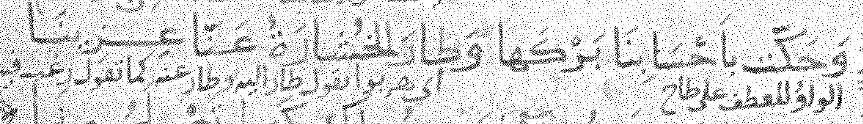 وَحَكَّت بِأَحْسَابِنَا بَرْكَهَا وَطَارَ الخُشَارَةُ عَنَّا عِزِينَا
الواو للعطف على طاح اى هربوا تقول طار اليه وطار عنه كما تقول رغب فيه